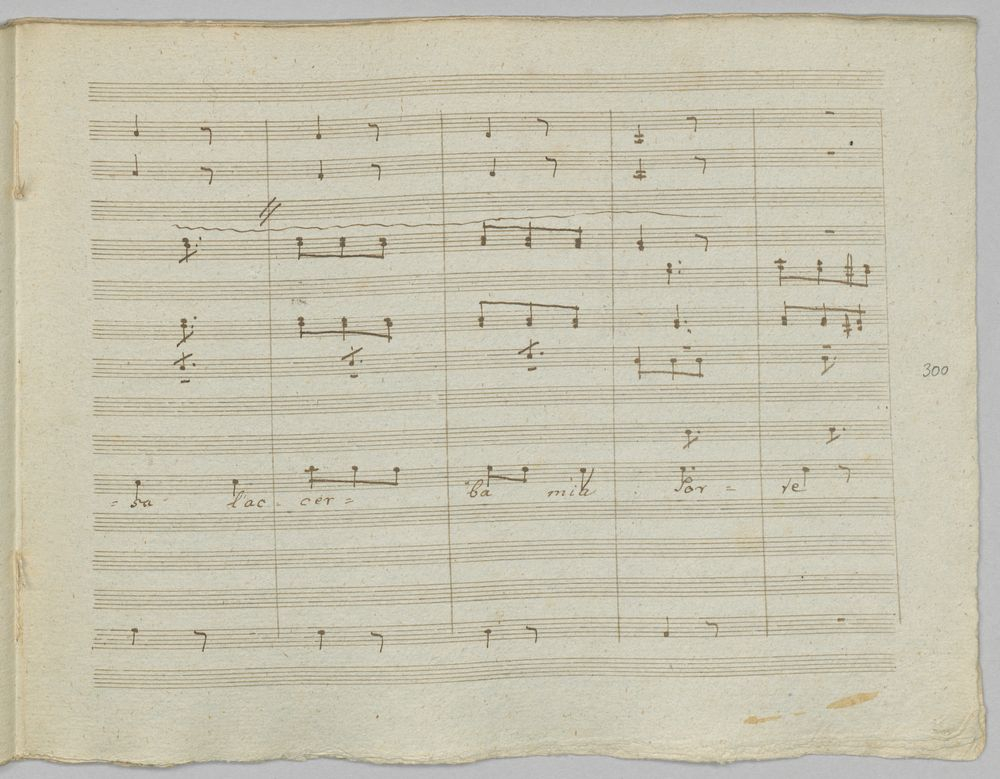 300
= sa l'ac - cer = ba mia Sor = te